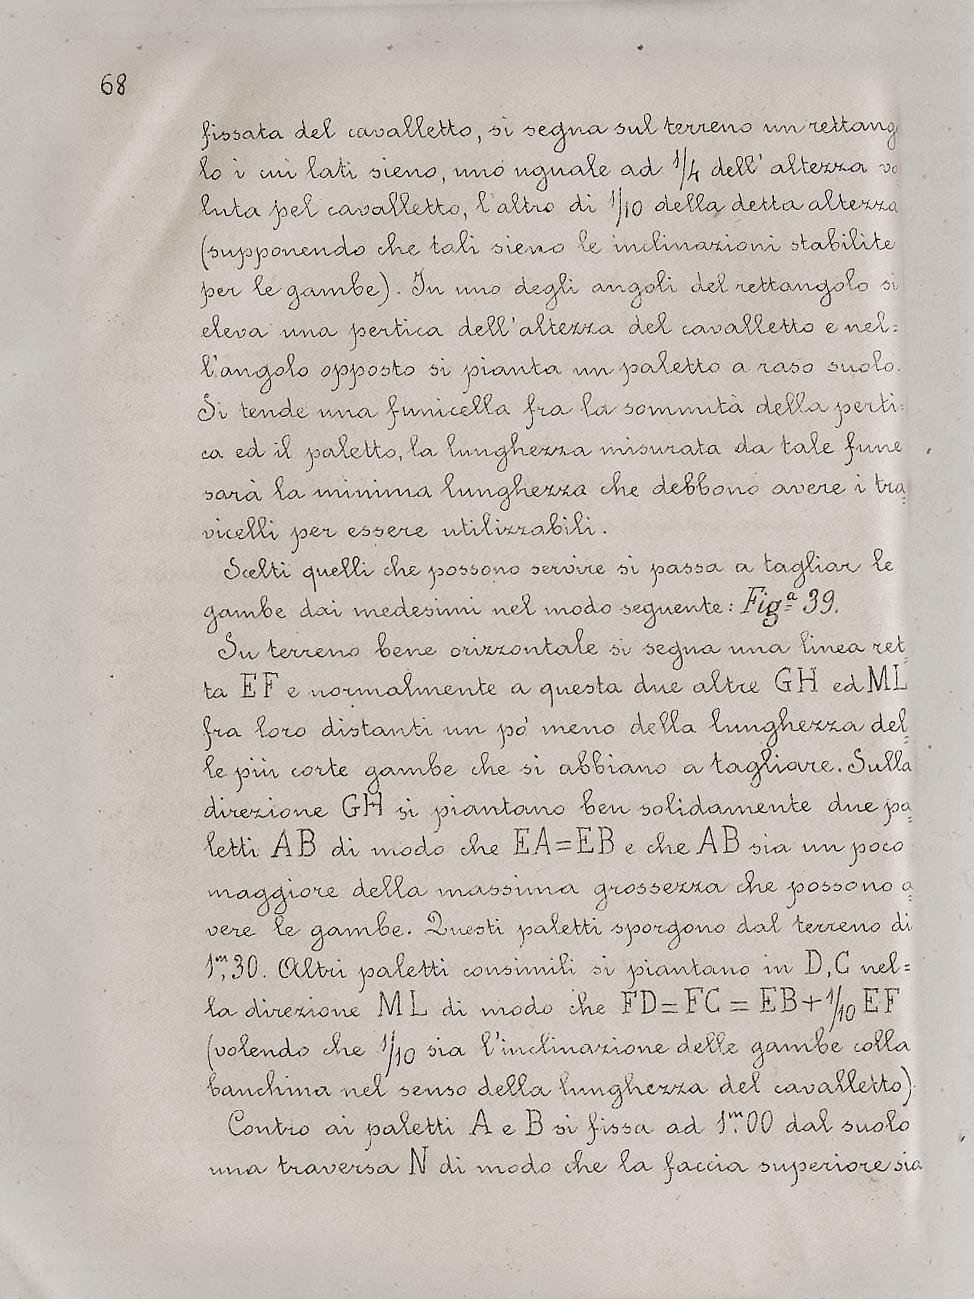 68
fissata del cavalletto, si segna sul terreno un rettang
lo i cui lati sieno, uno uguale ad 1/4 dell'altezza vo
luta pel cavalletto, l'altro di 1/10 della detta altezza
(supponendo che tali sieno le inclinazioni stabilite
per le gambe). In uno degli angoli del rettangolo si
eleva una pertica dell'altezza del cavalletto e nel=
l'angolo opposto si pianta un paletto a raso suolo.
Si tende una funicella fra la sommità della perti=
ca ed il paletto, la lunghezza misurata da tale fune
sarà la minima lunghezza che debbono avere i tra=
vicelli per essere utilizzabili.
Scelti quelli che possono servire si passa a tagliar le
gambe dai medesimi nel modo seguente: Figª 39.
Su terreno bene orizzontale si segna una linea ret=
ta EF e normalmente a questa due altre GH ed ML
fra loro distanti un pó meno della lunghezza del=
le più corte gambe che si abbiano a tagliare. Sulla
direzione GH si piantano ben solidamente due pa=
letti AB di modo che EA=EB e che AB sia un poco
maggiore della massima grossezza che possono a=
vere le gambe. Questi paletti sporgono dal terreno di
1m,30. Altri paletti consimili si piantano in D,C nel=
la direzione ML di modo che FD=FC=EB+1/10 EF
(volendo che 1/10 sia l'inclinazione delle gambe colla
banchina nel senso della lunghezza del cavalletto).
Contro ai paletti A e B si fissa ad 1m,00 dal suolo
una traversa N di modo che la faccia superiore sia